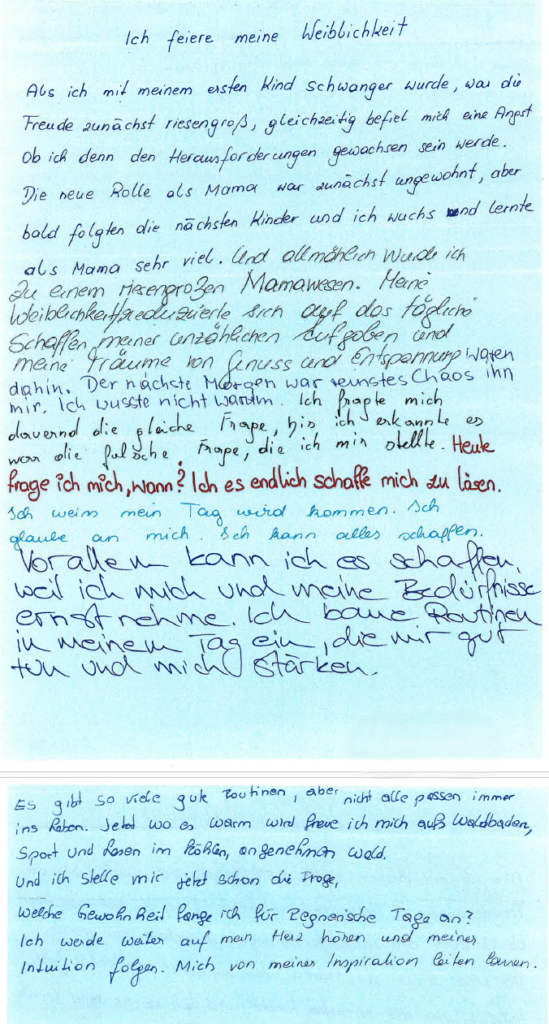 Ich feiere meine Weiblichkeit
Als ich mit meinem ersten Kind schwanger wurde, war die
Freude zunächst riesengroß, gleichzeitig befiel mich eine Angst
Ob ich denn den Herausforderungen gewachsen sein werde.
Die neue Rolle als Mama war zunächst ungewohnt, aber
bald folgten die nächsten Kinder und ich wuchs und lernte
als Mama sehr viel. Und allmählich wurde ich
zu einem riesengroßen Mamawesen. Meine
Weiblichkeit reduzierte sich auf das tägliche
Schaffen meiner unzähligen Aufgaben und
meine Träume von Genuss und Entspannung waren
dahin. Der nächste Morgen war reinstes Chaos ihn
mir. Ich wusste nicht warum. Ich fragte mich
dauernd die gleiche Frage, bis ich erkannte es
war die falsche Frage, die ich mir stellte. Heute
frage ich mich, wann? Ich es endlich schaffe mich zu lösen.
Ich weiss mein Tag wird kommen. Ich
glaube an mich. Ich kann alles schaffen.
Vorallem kann ich es schaffen,
weil ich mich und meine Bedürfnisse
ernst nehme. Ich baue Routinen
in meinem Tag ein, die mir gut
tun und mich stärken.
Es gibt so viele gute Routinen, aber nicht alle passen immer
ins Leben. Jetzt wo es warm wird freue ich mich aufs Waldbaden,
Sport und Lesen im kühlen, angenehmen Wald.
Und ich stelle mir jetzt schon die Frage,
Welche Gewohnheit fange ich für Regnerische Tage an?
Ich werde weiter auf mein Herz hören und meiner
Intuition folgen. Mich von meiner Inspiration leiten lassen.